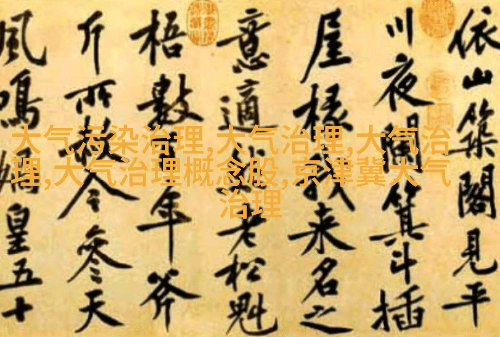 依山築閣見平
川夜闌箕斗插
屋椽我来名之
意適然老松魁
梧數百年斧
斤所赦今參天
風鳴媧皇五十
大气污染治理,大气治理,大气治
理,大气治理概念股,京津冀大气
治理